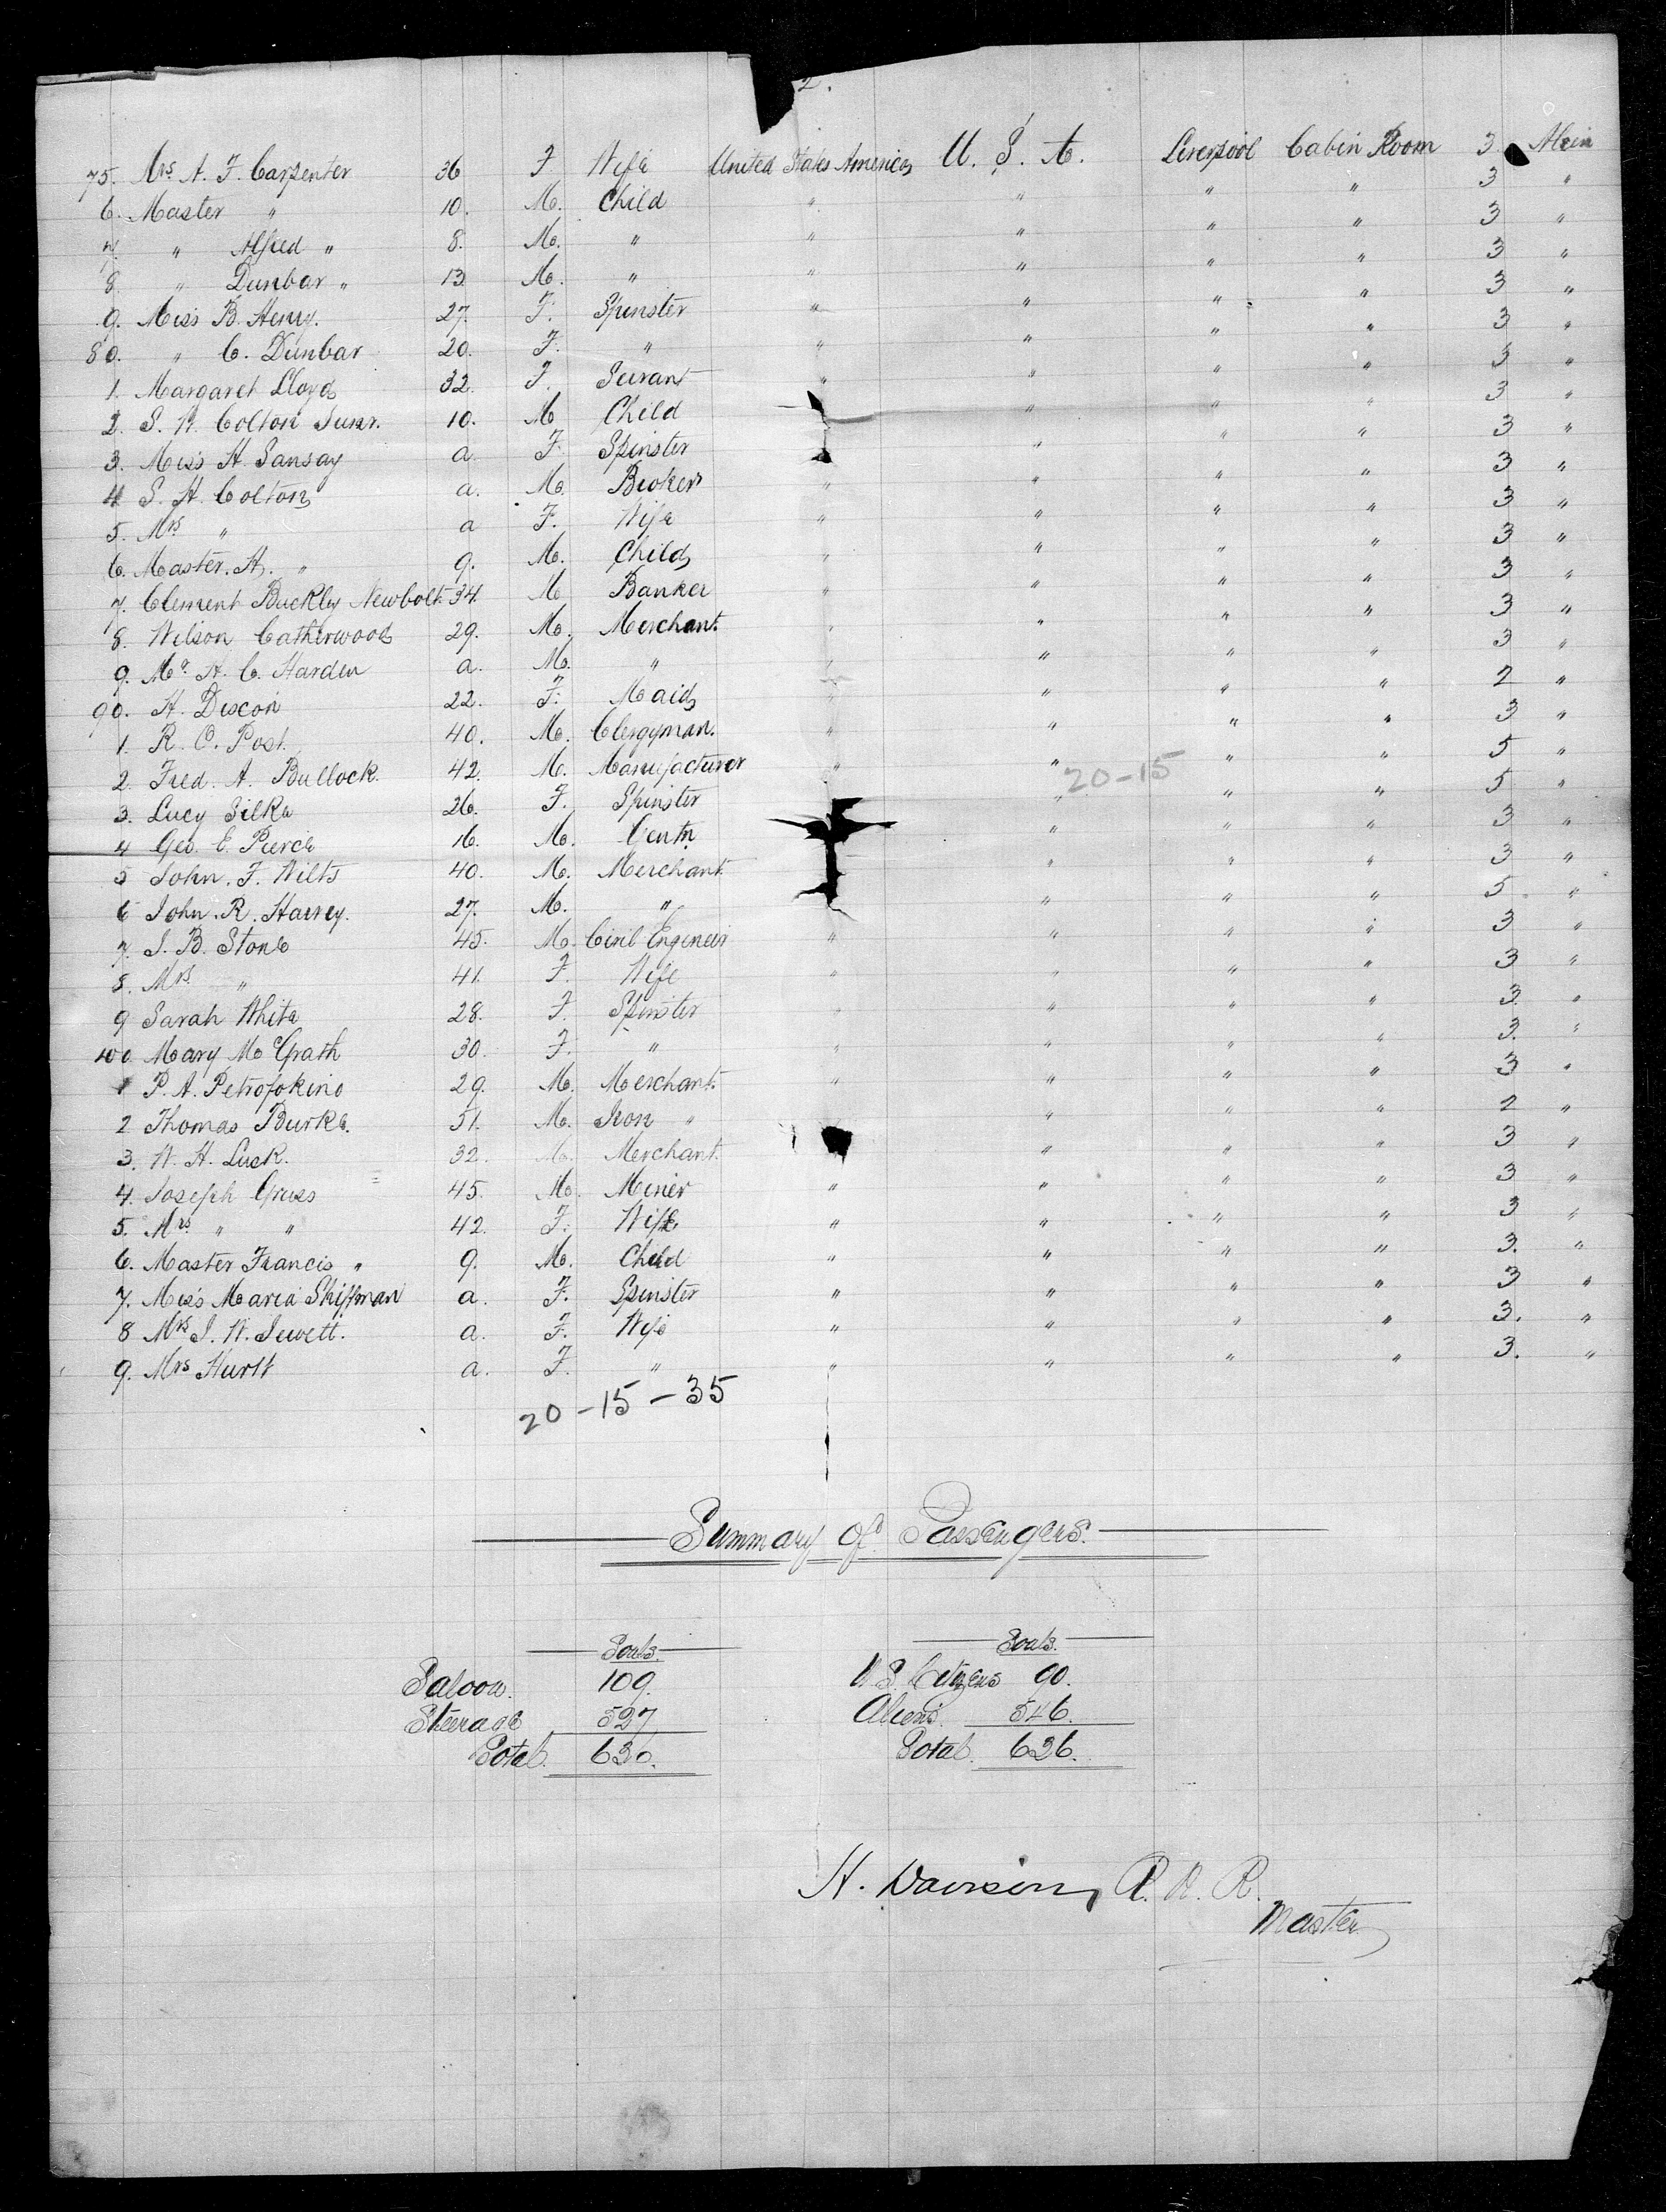 2.
75. Mrs. A. F. Carpenter 36 F Wife United States America U. S. A. Liverpool Cabin Room 3 Main
6. Master " 10. M. Child " " " " 3 "
7. " Alfred " 8. M. " " " " " 3 "
8. " Dunbar " 13. M. " " " " " 3 "
9. Miss B. Henry. 27. F. Spinster " " " " 3 "
80. " C. Dunbar 20. F. " " " " " 3 "
1. Margaret Lloyd 32. F. Servant " " " " 3 "
2. S. W. Colton Junr. 10. M Child " " " 3 "
3. Miss H. Sansay a F. Spinster " " " 3 "
4 S. H. Colton a. M. Broker " " " " 3 "
5. Mrs " a F. Wife " " " " 3 "
6. Master. H. " 9. M. Child " " " " 3 "
7. Clement Buckley Newbolt. 34. M Banker " " " " 3 "
8. Wilson Catherwood 29. M. Merchant. " " " " 3 "
9. Mr H. C. Harden a. M. " " " " " 3 "
90. H. Discon 22. F. Maid " " " " 2 "
1. R. O. Post. 40. M. Clergyman. " " " " 3 "
2. Fred. A. Bullock. 42. M. Manufacturer " " " " 5 "
20-15
3. Lucy Silka 26. F. Spinster " " " 5 "
4 Geo. E. Pierce 16. M. Gentn " " " 3 "
5 John. F. Wilts 40. M. Merchant. " " " 3 "
6 John. R. Harvey. 27. M. " " " " 5 "
7. J. B. Stone 45. M. Civil Engineer " " " " 3 "
8. Mrs " 41. F. Wife " " " " 3 "
9 Sarah White 28. F. Spinster " " " " 3. "
100 Mary McGrath 30. F. " " " " " 3. "
1 P. A. Petrofokino 29. M. Merchant. " " " " 3 "
2 Thomas Burke. 51. M. Iron " " " " " 2 "
3. W. H. Luck. 32. M. Merchant. " " " 3 "
4. Joseph Gruss 45. M. Miner " " " " 3 "
5. Mrs " " 42. F. Wife " " " " 3 "
6. Master Francis " 9. M. Child " " " " 3. "
7. Miss Maria Shiffman a. F. Spinster " " " " 3 "
8 Mrs J. W. Jewett. a. F. Wife " " " " 3. "
9. Mrs Hurtt a. F. " " " " " 3. "
20-15-35
Summary of Passengers.
Souls. Souls.
Saloon. 109. U S. Citizens 90.
Steerage 527 Aliens. 546.
Total. 636. Total. 636.
H. R. N. R.
Master